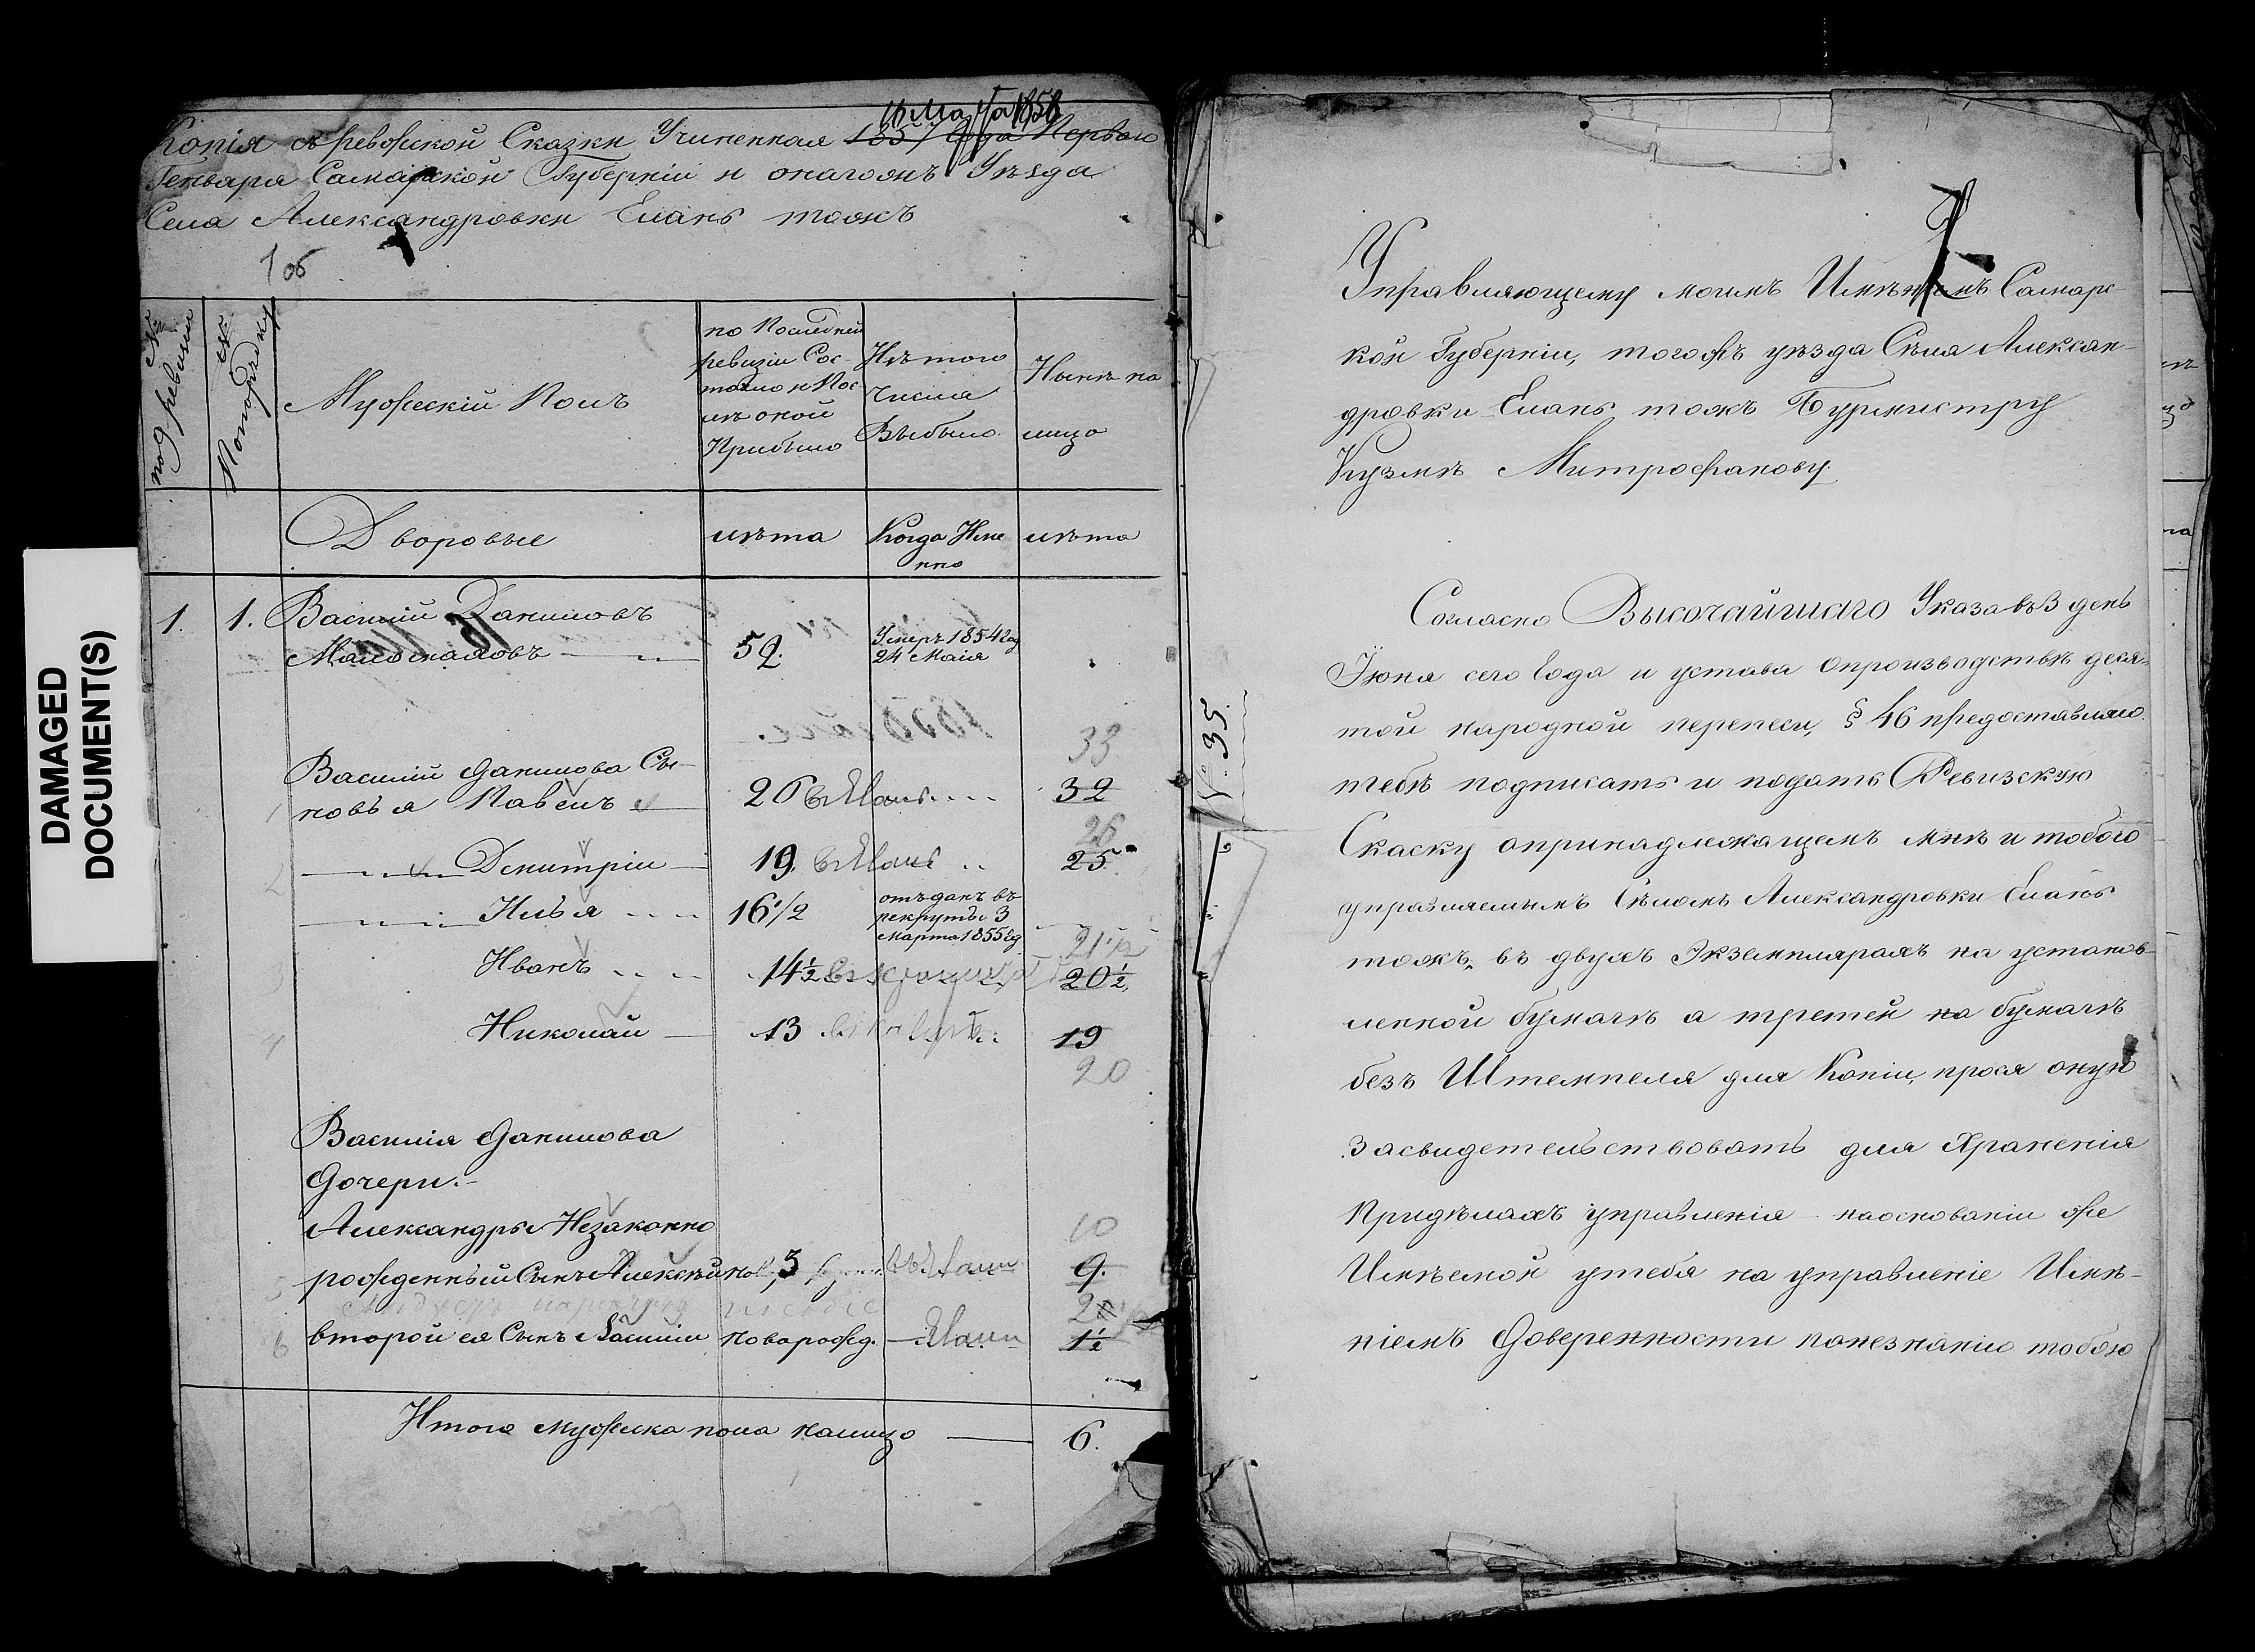 DAMAGED
DOCUMENT(S)
16 Марта 1858
Копія съ ревожской Сказки Учиненная 1857 Года Перваго
Генваря Самарской Губерніи и онагожъ Уѣзда
Села Александровки Елань тожъ
1 об
№ под ревизіи
Попорядку
Мужескій Полъ
по Последней
ревизіи Сос-
тояло и Пос
лѣ оной
Прибыло
Изъ того
Числа
Выбыло
Нынѣ на
лицо
Дворовые
лѣта
Когда Име
нно
лѣта
1. 1. Василий Даниловъ
52.
Умеръ 1854 год
24 Маія
33
Василий Данилова Сы-
новья Павелъ 26 32
26
Дмитріи 19. 25.
Илья 16 1/2
отъданъ въ
рекруты 3
Марта 1855 год
21 1/2
Иванъ 14 1/2 20 1/2
Николай 13 19
20
Василія Данилова
Дочери.
Александры Незаконно
10
рожденный Сынъ Алексѣй 3 9.
второй ея Сынъ Василіи новорожд. 1 1/2
Итого мужеска пола налицо 6.
Управляющему моимъ Имѣніемъ Самарс-
кой Губерніи, тогожъ уѣзда Сѣла Алексан-
дровки Елань тожъ Бурмистру
Кузмѣ Митрофанову.
Согласно Высочайшаго Указа въ 3 день
Іюня сего Года и устава опроизводствѣ деся-
той народной переписи, § 46 предоставляю
тебѣ подписать и подать Ревизскую
Скаску опринадлежащемъ мнѣ и тобого
управляемымъ Сѣломъ Александровки Елань
тожъ, въ двухъ Экземплярахъ на установ-
ленной бумагѣ а третей на бумагѣ
безъ Штемпеля для Копіи, прося оную
Засвидетельствовать для Храненія
Придѣлахъ управленія наоснованіи же
Имѣемой утебя на управленіе Имѣ-
ніемъ Доверенности понезнанію тобою
№ 35.